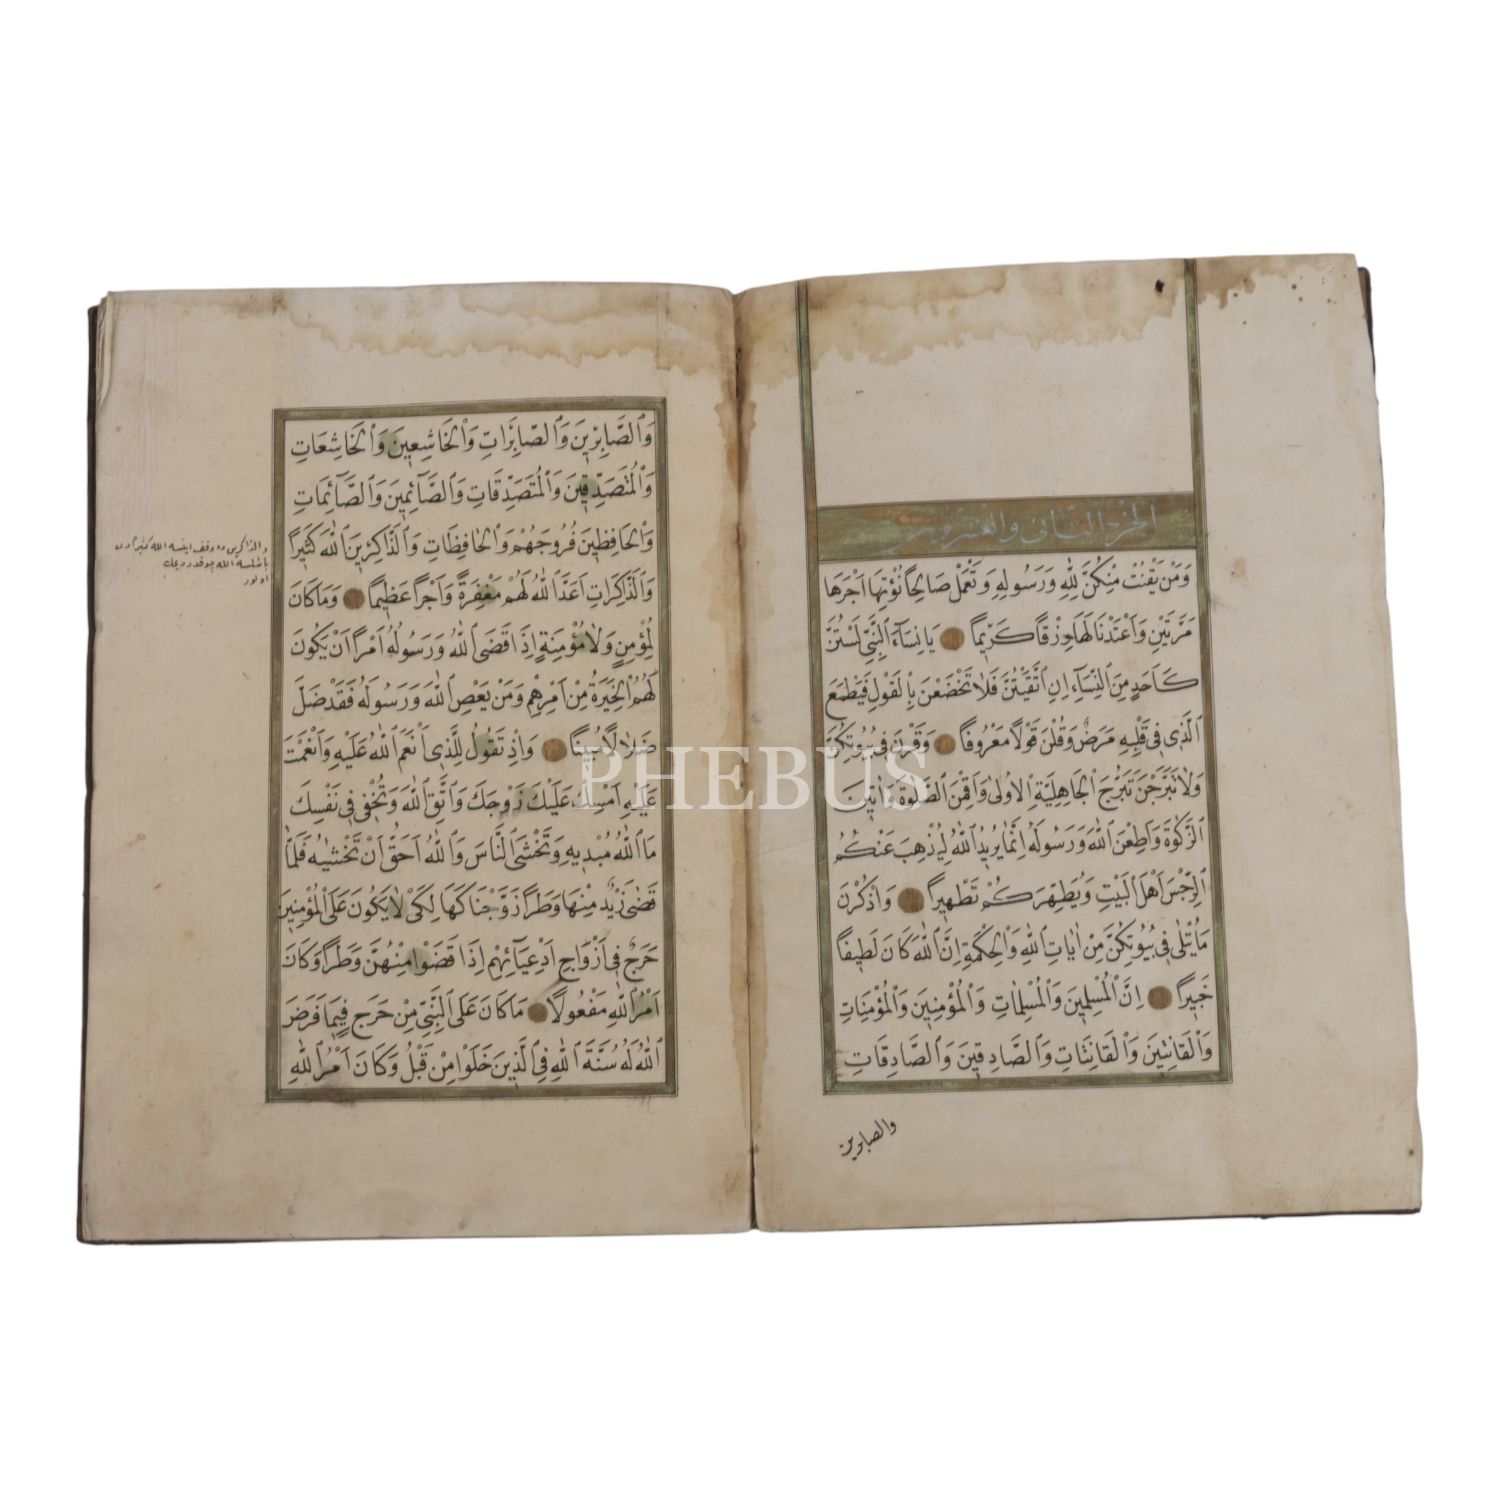 الجزء الثاني والعشرون
وَمَنْ يَقْنُتْ مِنْكُنَّ لِلّٰهِ وَرَسُولِهِ وَتَعْمَلْ صَالِحًا نُؤْتِهَا اَجْرَهَا
مَرَّتَيْنِ وَاَعْتَدْنَا لَهَا رِزْقًا كَرِيمًا يَا نِسَاۤءَ النَّبِيِّ لَسْتُنَّ
كَاَحَدٍ مِنَ النِّسَاۤءِ اِنِ اتَّقَيْتُنَّ فَلَا تَخْضَعْنَ بِالْقَوْلِ فَيَطْمَعَ
الَّذِي فِي قَلْبِهِ مَرَضٌ وَقُلْنَ قَوْلًا مَعْرُوفًا وَقَرْنَ فِي بُيُوتِكُنَّ
وَلَا تَبَرَّجْنَ تَبَرُّجَ الْجَاهِلِيَّةِ الْاُولٰى وَاَقِمْنَ الصَّلٰوةَ وَاٰتِينَ
الزَّكٰوةَ وَاَطِعْنَ اللّٰهَ وَرَسُولَهُ اِنَّمَا يُرِيدُ اللّٰهُ لِيُذْهِبَ عَنْكُمُ
الرِّجْسَ اَهْلَ الْبَيْتِ وَيُطَهِّرَكُمْ تَطْهِيرًا وَاذْكُرْنَ
مَا يُتْلٰى فِي بُيُوتِكُنَّ مِنْ اٰيَاتِ اللّٰهِ وَالْحِكْمَةِ اِنَّ اللّٰهَ كَانَ لَطِيفًا
خَبِيرًا اِنَّ الْمُسْلِمِينَ وَالْمُسْلِمَاتِ وَالْمُؤْمِنِينَ وَالْمُؤْمِنَاتِ
وَالْقَانِتِينَ وَالْقَانِتَاتِ وَالصَّادِقِينَ وَالصَّادِقَاتِ
والصابرين
وَالصَّابِرِينَ وَالصَّابِرَاتِ وَالْخَاشِعِينَ وَالْخَاشِعَاتِ
وَالْمُتَصَدِّقِينَ وَالْمُتَصَدِّقَاتِ وَالصَّاۤئِمِينَ وَالصَّاۤئِمَاتِ
وَالْحَافِظِينَ فُرُوجَهُمْ وَالْحَافِظَاتِ وَالذَّاكِرِينَ اللّٰهَ كَثِيرًا
وَالذَّاكِرَاتِ اَعَدَّ اللّٰهُ لَهُمْ مَغْفِرَةً وَاَجْرًا عَظِيمًا وَمَا كَانَ
لِمُؤْمِنٍ وَلَا مُؤْمِنَةٍ اِذَا قَضَى اللّٰهُ وَرَسُولُهُ اَمْرًا اَنْ يَكُونَ
لَهُمُ الْخِيَرَةُ مِنْ اَمْرِهِمْ وَمَنْ يَعْصِ اللّٰهَ وَرَسُولَهُ فَقَدْ ضَلَّ
ضَلَالًا مُبِينًا وَاِذْ تَقُولُ لِلَّذِي اَنْعَمَ اللّٰهُ عَلَيْهِ وَاَنْعَمْتَ
عَلَيْهِ اَمْسِكْ عَلَيْكَ زَوْجَكَ وَاتَّقِ اللّٰهَ وَتُخْفِي فِي نَفْسِكَ
مَا اللّٰهُ مُبْدِيهِ وَتَخْشَى النَّاسَ وَاللّٰهُ اَحَقُّ اَنْ تَخْشٰيهُ فَلَمَّا
قَضٰى زَيْدٌ مِنْهَا وَطَرًا زَوَّجْنَاكَهَا لِكَيْ لَا يَكُونَ عَلَى الْمُؤْمِنِينَ
حَرَجٌ فِي اَزْوَاجِ اَدْعِيَاۤئِهِمْ اِذَا قَضَوْا مِنْهُنَّ وَطَرًا وَكَانَ
اَمْرُ اللّٰهِ مَفْعُولًا مَا كَانَ عَلَى النَّبِيِّ مِنْ حَرَجٍ فِيمَا فَرَضَ
اللّٰهُ لَهُ سُنَّةَ اللّٰهِ فِي الَّذِينَ خَلَوْا مِنْ قَبْلُ وَكَانَ اَمْرُ اللّٰهِ
والذاكرين ده وقف ايتسه الله كثيرا دن
باشلسه الله چوقدر ديمك
اولور
PHEBUS